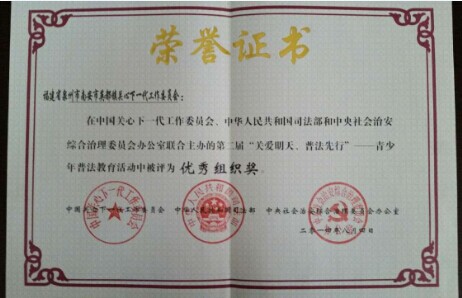 荣誉证书
福建省泉州市南安市美都镇关心下一代工作委员会：
在中国关心下一代工作委员会、中华人民共和国司法部和中央社会治安
综合治理委员会办公室联合主办的第二届“关爱明天、普法先行”——青少
年普法教育活动中被评为 优秀组织奖
中国关心下一代工作委员会 中华人民共和国司法部 中央社会治安综合治理委员会办公室
二〇一四年八月四日